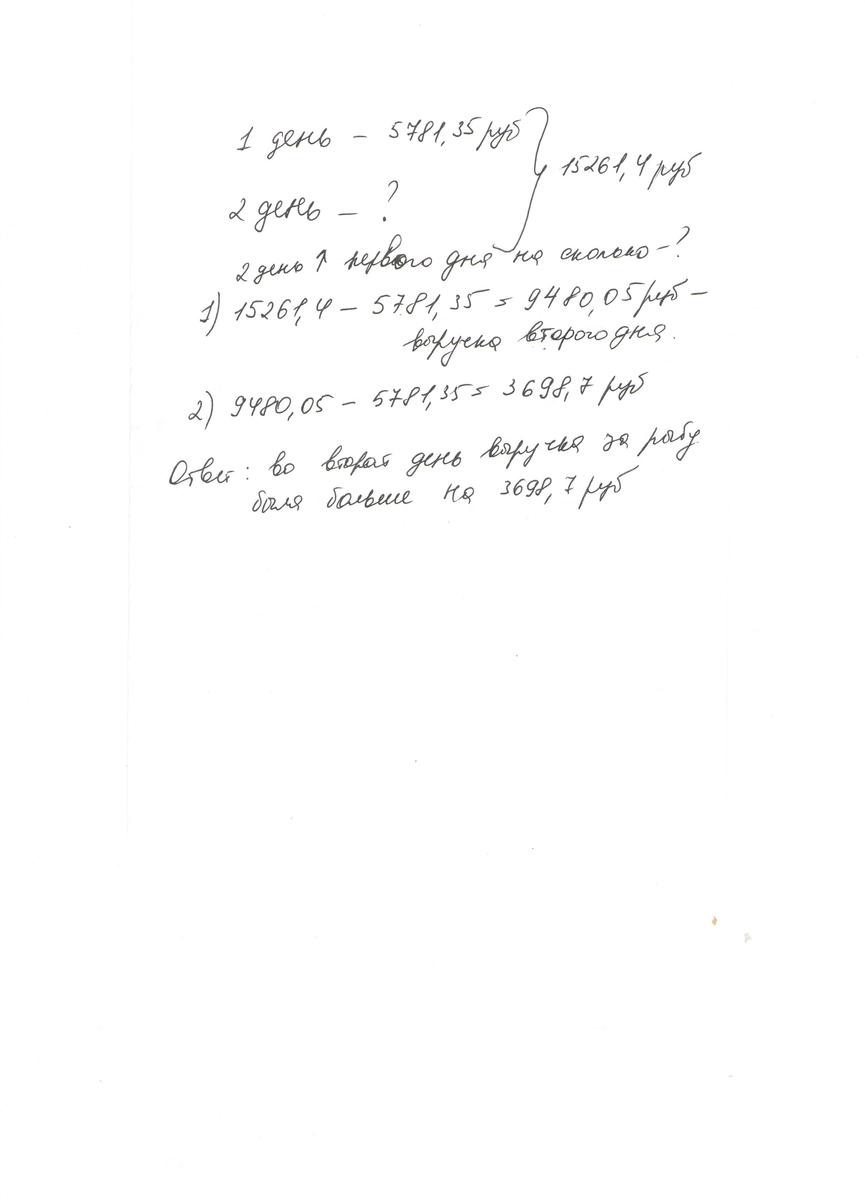 1 день – 5781,35 руб
15261,4 руб
2 день – ?
2 день ↑ первого дня на сколько – ?
1) 15261,4 – 5781,35 = 9480,05 руб –
выручка второго дня.
2) 9480,05 – 5781,35 = 3698,7 руб
Ответ: во второй день выручка за рыбу
была больше на 3698,7 руб